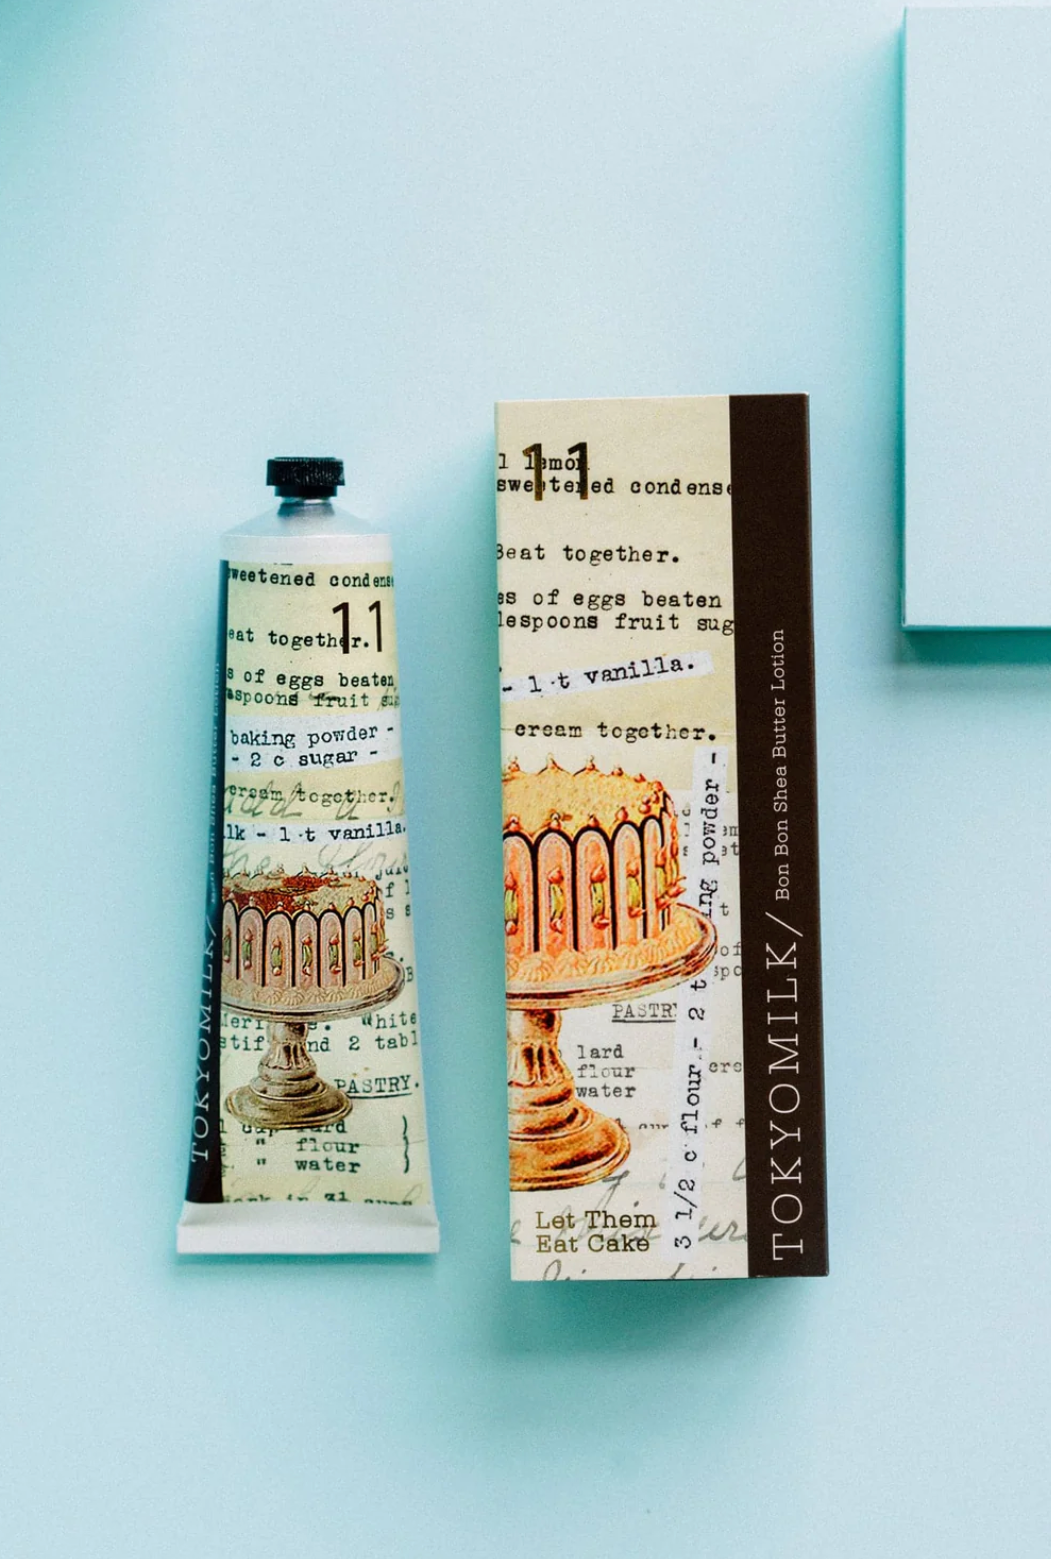 sweetened condens
11
eat together.
s of eggs beaten
spoons fruit
baking powder -
- 2 c sugar -
cream together.
lk - 1 t vanilla.
white
nd 2 tabl
PASTRY.
flour
" water
TOKYOMILK/ Bon Bon Shea Butter Lotion
11
1 lemon
sweetened condense
Beat together.
es of eggs beaten
lespoons fruit sug
- 1 t vanilla.
cream together.
PASTR
lard
flour
water
3 1/2 c flour - 2 t ing powder -
Let Them
Eat Cake
TOKYOMILK/ Bon Bon Shea Butter Lotion